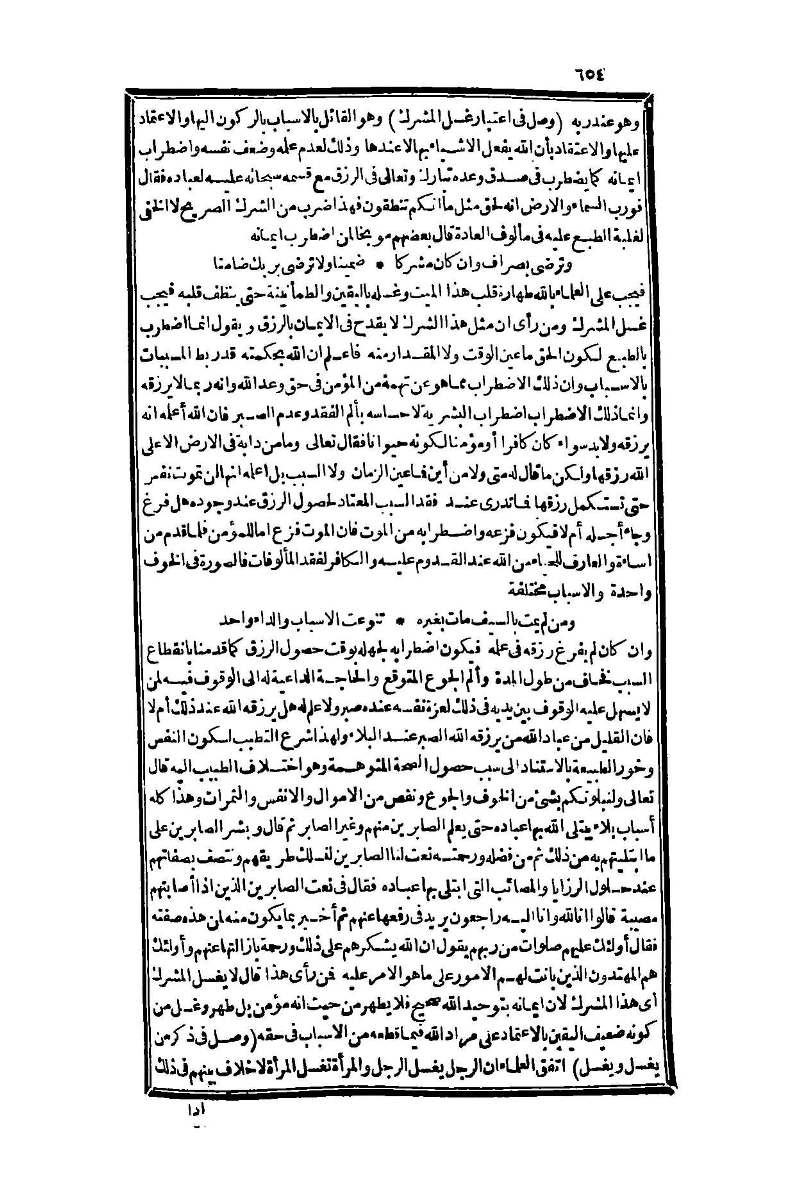 ٦٥٤
وهو عند ربه (وصل فى اعتبار غسل المشرك) وهو القائل بالاسباب بالركون اليها والاعتماد
عليها والاعتقاد بأن الله يفعل الاشياء بها لا عندها وذلك لعدم علمه وضعف نفسه واضطراب
ايمانه كما يضطرب فى صدق وعده تبارك وتعالى فى الرزق مع قسمه سبحانه عليه لعباده فقال
فورب السماء والارض انه لحق مثل ما انكم تنطقون فهذا ضرب من الشرك الصريح لا الخفى
لغلبة الطبع عليه فى مألوف العادة قال بعضهم موبخا لمن اضطرب ايمانه
وترضى بصراف وان كان مشركا * ضمينا ولا ترضى بربك ضامنا
فيجب على العلماء بالله طهارة قلب هذا الميت وغسله باليقين والطمأنينة حتى ينظف قلبه فيجب
غسل المشرك ومن رأى ان مثل هذا الشرك لا يقدح فى الايمان بالرزق ويقول انما اضطرب
بالطبع لكون الحق ما عين الوقت ولا المقدار منه فاعلم ان الله بحكمته قد ربط المسببات
بالاسباب وان ذلك الاضطراب مما هو عن تهمة من المؤمن فى حق وعد الله وانه ربما لا يرزقه
وانما ذلك الاضطراب اضطراب البشرية لاحساسه بألم الفقد وعدم الصبر فان الله أعلمه انه
يرزقه ولا بد سواء كان كافرا أو مؤمنا لكونه حيوانا فقال تعالى وما من دابة فى الارض الا على
الله رزقها ولكن ما قال له متى ولا من أين فما عين الزمان ولا السبب بل اعلمه انها لن تموت نفس
حتى تستكمل رزقها فما تدرى عند فقد السبب المعتاد لحصول الرزق عند وجوده هل فرغ
وجاء أجله أم لا فيكون فزعه واضطرابه من الموت فان الموت فزع اما للمؤمن فلما قدم من
اساءة والعارف للحياء من الله عند القدوم عليه والكافر لفقد المألوفات فالصورة فى الخوف
واحدة والاسباب مختلفة
ومن لم يمت بالسيف مات بغيره * تنوعت الاسباب والداء واحد
وان كان لم يفرغ رزقه فى علمه فيكون اضطرابه لجهله بوقت حصول الرزق كما قدمنا بانقطاع
السبب فخاف من طول المدة وألم الجوع المتوقع والحاجة الداعية له الى الوقوف فيه لمن
لا يسهل عليه الوقوف بين يديه فى ذلك لعزة نفسه عنده صبر ولا علم له هل يرزقه الله عند ذلك أم لا
فان القليل من عباد الله من يرزقه الله الصبر عند البلاء ولهذا شرع التطبب لسكون النفس
وخور الطبيعة بالاستناد الى سبب حصول الصحة المتوهمة وهو اختلاف الطبيب اليه قال
تعالى ولنبلونكم بشئ من الخوف والجوع ونقص من الاموال والانفس والثمرات وهذا كله
أسباب بلاء يبتلى الله بها عباده حتى يعلم الصابرين منهم وغير الصابر ثم قال وبشر الصابرين على
ما ابتليتهم به من ذلك ثم من فضله ورحمته نعت لنا الصابرين لنسلك طريقهم ونتصف بصفاتهم
عند حلول الرزايا والمصائب التى ابتلى بها عباده فقال فى نعت الصابرين الذين اذا أصابتهم
مصيبة قالوا انا لله وانا اليه راجعون يريد فى رفعها عنهم ثم أخبر بما يكون منه لمن هذه صفته
فقال أولئك عليهم صلوات من ربهم يقول ان الله يشكرهم على ذلك ورحمة بازالتها عنهم وأولئك
هم المهتدون الذين بانت لهم الامور على ما هو الامر عليه فمن رأى هذا قال لا يغسل المشرك
أى هذا المشرك لان ايمانه بتوحيد الله صحيح فلا يطهر من حيث انه مؤمن بل طهر وغسل من
كونه ضعيف اليقين بالاعتماد على مراد الله فيما قطعه من الاسباب فى حقه (وصل فى ذكر من
يغسل ويغسل) اتفق العلماء ان الرجل يغسل الرجل والمرأة تغسل المرأة لا خلاف بينهم فى ذلك
اذا